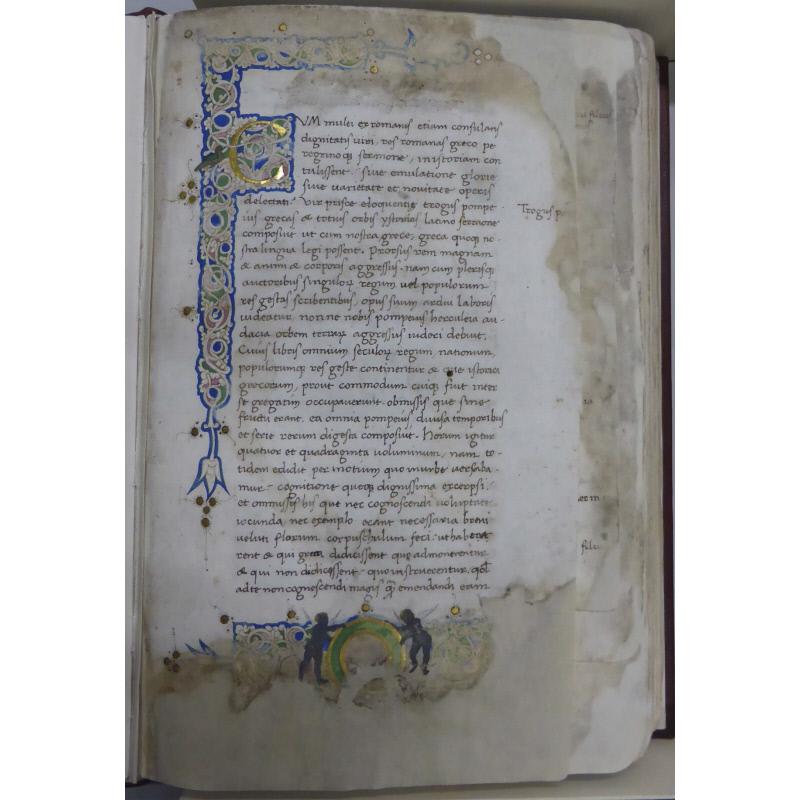 CVM multi ex romanis etiam consularis
dignitatis uiri, res romanas greco pe
regrinoq; sermone, in istoriam con
tulissent. Siue emulatione glorie
siue uarietate et nouitate operis
delectati. Vir prisce eloquentie trogus pompe
ius grecas & totius orbis ystorias latino sermone
composuit ut cum nostra grece, greca quoq; no
stra lingua legi possent. Prorsus rem magnam
& animi & corporis aggressus. nam cum plerisq;
auctoribus singulorꝝ regum uel populorum
res gestas scribentibus, opus suum ardui laboris
uideatur, nonne nobis pompeius herculeia au-
dacia orbem terrarꝝ aggressus uideri debuit.
Cuius libris omnium seculorꝝ regum, nationum,
populorumq; res geste continentur & que istoria
grecorum, prout commodum cuiq; fuit inter
se gregatim occupauerunt. obmissis que sine
fructu erant. ea omnia pompeius, diuisa temporibus
et serie rerum digesta composuit. Horum igitur
quatuor et quadraginta uoluminum, nam to-
tidem edidit per inotium quo in urbe uersaba
mur- cognitione queq; dignissima excerpsi.
et ommissis his que nec cognoscendi uoluptate
iocunda, nec exemplo erant necessaria breue
veluti florum corpusculum feci. ut haberent
rent & qui greca didicissent quo admonerentur
& qui non didicissent. quo instruerentur. qd
ad te non cognoscendi magis q̃ emendandi eam
Trogus p.